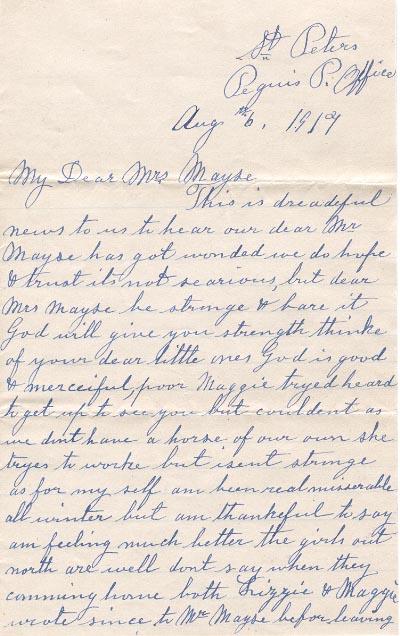 St Peters
Peguis P. Office
Aug th 6, 1917
My Dear Mrs Mayse
This is dreadeful
news to us to hear our dear Mr
Mayse has got wonded we do hope
& trust its not searious, but dear
Mrs Mayse be stronge & bare it
God will give you strength thinke
of your dear little ones God is good
& merciful, poor Maggie tryed heard
to get up to see you but couldent as
we dont have a horse of our own she
tryes to worke but isent stronge
as for my self am been real misserable
all winter but am thankful to say
am feeling much better the girls out
north are well dont say when they
comming home both Lizzie & Maggie
wrote since to Mr Mayse before leaving